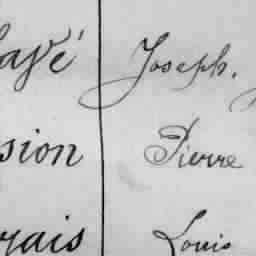 Joseph.
sion Pierre
rais Louis